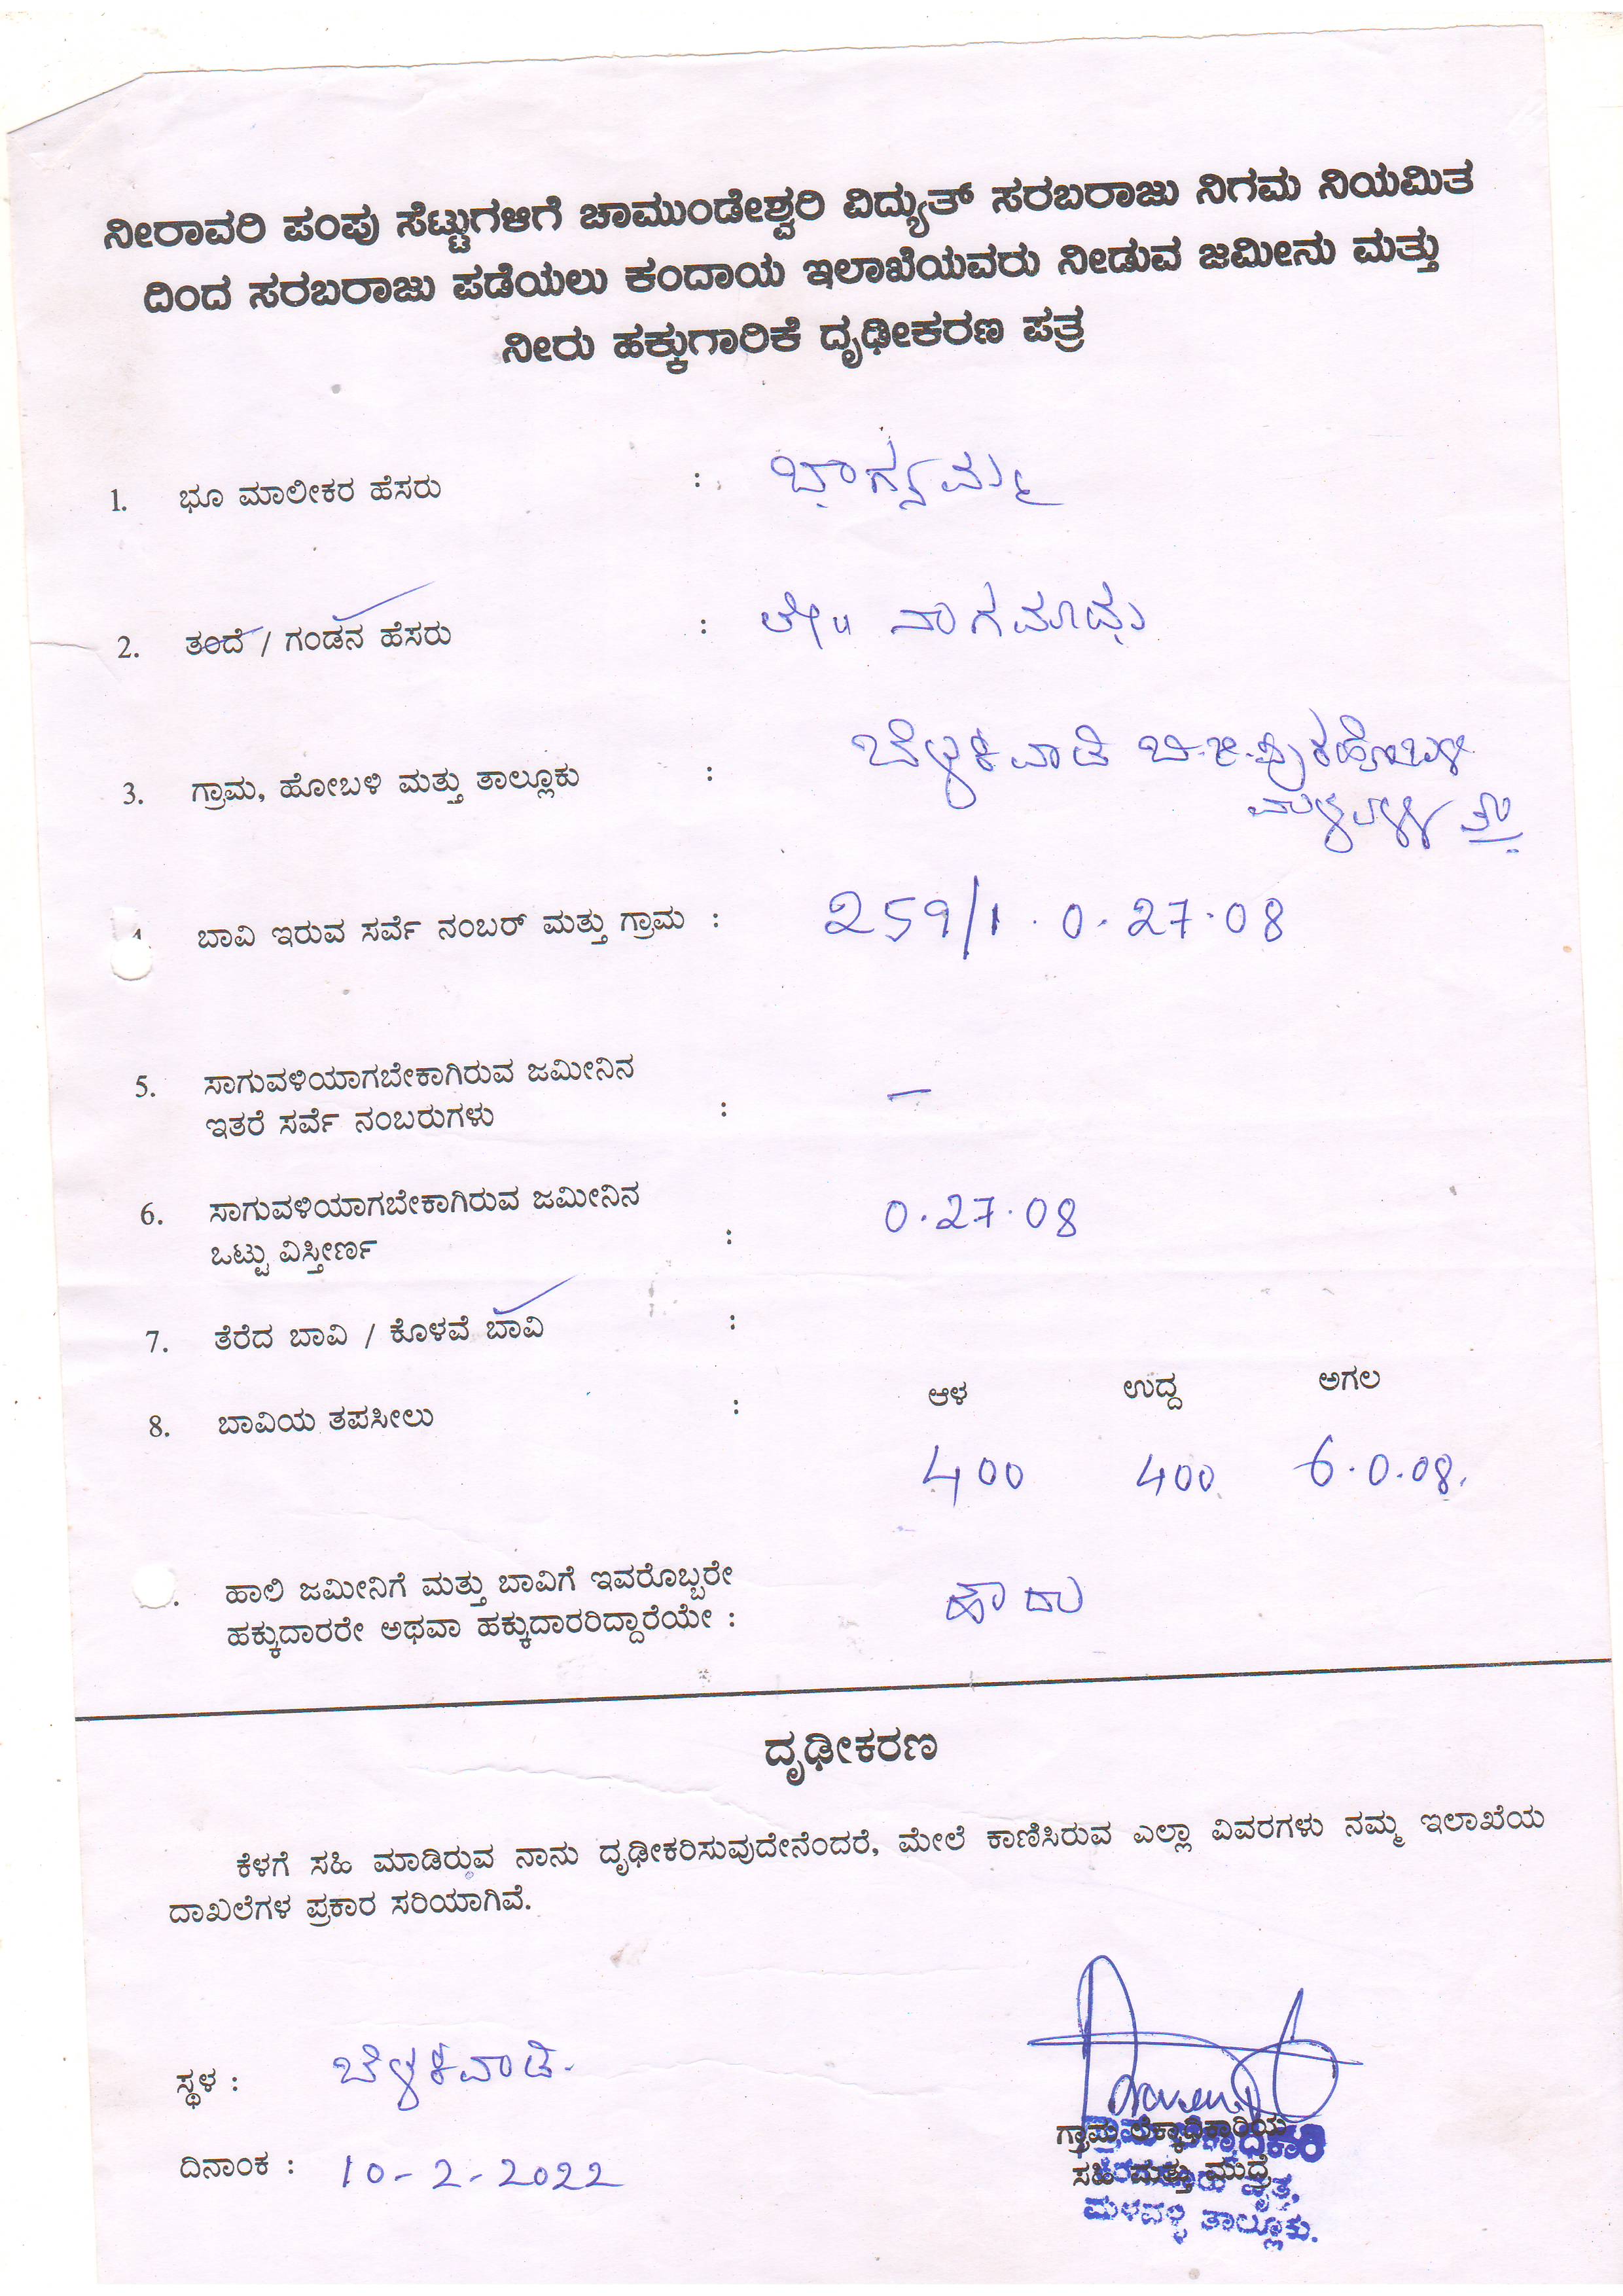 ನೀರಾವರಿ ಪಂಪು ಸೆಟ್ಟುಗಳಿಗೆ ಚಾಮುಂಡೇಶ್ವರಿ ವಿದ್ಯುತ್ ಸರಬರಾಜು ನಿಗಮ ನಿಯಮಿತ
ದಿಂದ ಸರಬರಾಜು ಪಡೆಯಲು ಕಂದಾಯ ಇಲಾಖೆಯವರು ನೀಡುವ ಜಮೀನು ಮತ್ತು
ನೀರು ಹಕ್ಕುಗಾರಿಕೆ ದೃಢೀಕರಣ ಪತ್ರ
1. ಭೂ ಮಾಲೀಕರ ಹೆಸರು : ಭಾಗ್ಯಮ್ಮ
2. ತಂದೆ / ಗಂಡನ ಹೆಸರು : ಲೇ॥ ನಾಗಮಾದು
3. ಗ್ರಾಮ, ಹೋಬಳಿ ಮತ್ತು ತಾಲ್ಲೂಕು : ಬೆಳಕವಾಡಿ ಬಿ.ಜಿ.ಪುರ ಹೋಬಳಿ
ಮಳವಳ್ಳಿ ತಾ॥
ಬಾವಿ ಇರುವ ಸರ್ವೆ ನಂಬರ್ ಮತ್ತು ಗ್ರಾಮ : 259/1 . 0.27.08
5. ಸಾಗುವಳಿಯಾಗಬೇಕಾಗಿರುವ ಜಮೀನಿನ
ಇತರೆ ಸರ್ವೆ ನಂಬರುಗಳು : –
6. ಸಾಗುವಳಿಯಾಗಬೇಕಾಗಿರುವ ಜಮೀನಿನ
ಒಟ್ಟು ವಿಸ್ತೀರ್ಣ : 0.27.08
7. ತೆರೆದ ಬಾವಿ / ಕೊಳವೆ ಬಾವಿ :
8. ಬಾವಿಯ ತಪಸೀಲು : ಆಳ ಉದ್ದ ಅಗಲ
400 400 6.0.08.
ಹಾಲಿ ಜಮೀನಿಗೆ ಮತ್ತು ಬಾವಿಗೆ ಇವರೊಬ್ಬರೇ
ಹಕ್ಕುದಾರರೇ ಅಥವಾ ಹಕ್ಕುದಾರರಿದ್ದಾರೆಯೇ : ಹೌದು
ದೃಢೀಕರಣ
ಕೆಳಗೆ ಸಹಿ ಮಾಡಿರುವ ನಾನು ದೃಢೀಕರಿಸುವುದೇನೆಂದರೆ, ಮೇಲೆ ಕಾಣಿಸಿರುವ ಎಲ್ಲಾ ವಿವರಗಳು ನಮ್ಮ ಇಲಾಖೆಯ
ದಾಖಲೆಗಳ ಪ್ರಕಾರ ಸರಿಯಾಗಿವೆ.
ಸ್ಥಳ : ಬೆಳಕವಾಡಿ.
ಗ್ರಾಮ ಲೆಕ್ಕಾಧಿಕಾರಿಯ
ದಿನಾಂಕ : 10-2-2022
ಸಹಿ ಮತ್ತು ಮುದ್ರೆ
ವೃತ್ತ,
ಮಳವಳ್ಳಿ ತಾಲ್ಲೂಕು.